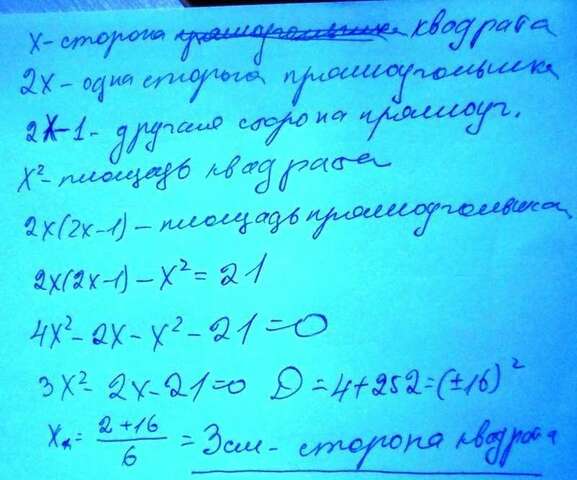 x - сторона прямоугольника квадрата
2x - одна сторона прямоугольника
2x-1 - другая сторона прямоуг.
x² - площадь квадрата
2x(2x-1) - площадь прямоугольника
2x(2x-1) - x² = 21
4x² - 2x - x² - 21 = 0
3x² - 2x - 21 = 0 D = 4 + 252 = (±16)²
x₁ = (2+16)/6 = 3 см - сторона квадрата